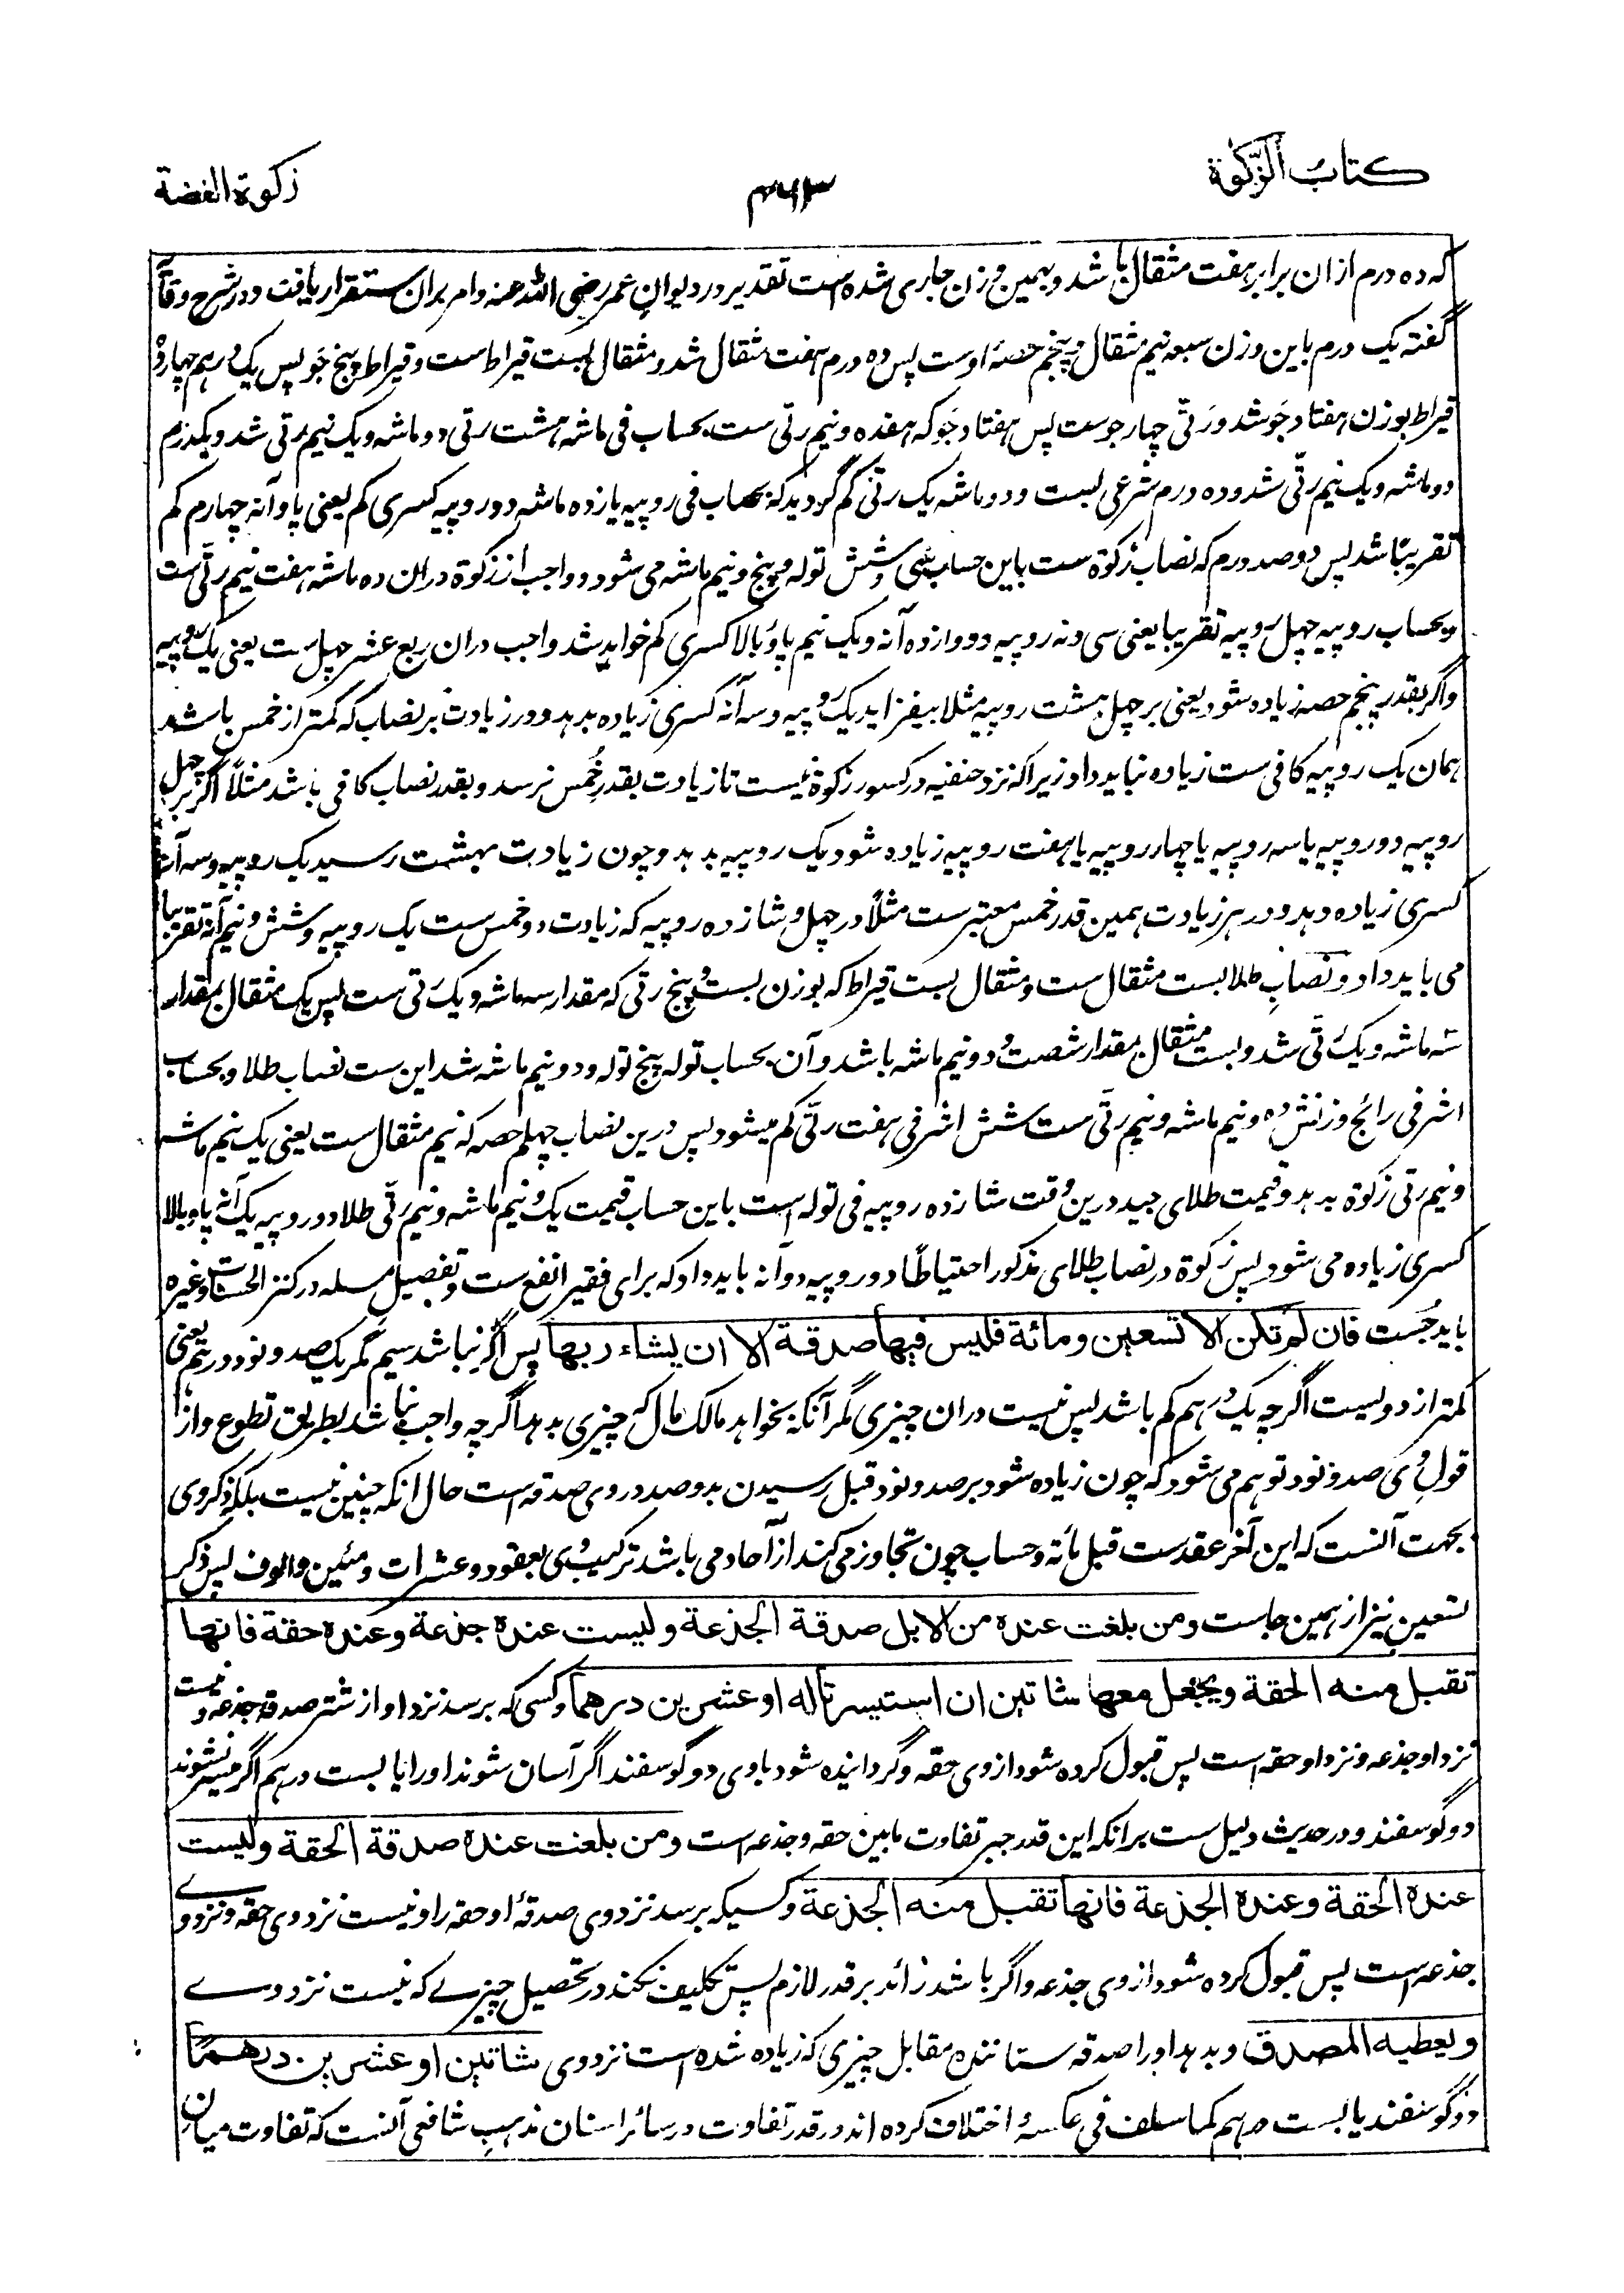 کتاب الزکوٰة
۴۶۳
زکوة الفضة
که ده درم ازان برابر هفت مثقال باشد و بهمین وزن جاری شده است تقدیر در دیوان عمر رضی الله عنه و امر بران استقرار یافت و در شرح وقایه
گفته یک درم باین وزن سبعه نیم مثقال و پنجم حصهٔ اوست پس ده درم هفت مثقال شد و مثقال بست قیراط ست و قیراط پنج جَو پس یک درهم چهارده
قیراط بوزن هفتاد جَو شد و رَتّی چهار جوست پس هفتاد جَو که هفده و نیم رتّی ست بحساب فی ماشه هشت رتی دو ماشه و یک نیم رتی شد و یکدرم
دو ماشه و یک نیم رتّی شد و ده درم شرعی بست و دو ماشه یک رتّی کم گردید که بحساب فی روپیه یازده ماشه دو روپیه کسری کم یعنی پاو آنه چهارم کم
تقریبًا شد پس دو صد درم که نصاب زکوة ست باین حساب سی و شش توله و پنج و نیم ماشه می شود و واجب از زکوة دران ده ماشه هفت نیم رتّی ست
و بحساب روپیه چهل روپیه تقریبا یعنی سی و نه روپیه دووازده آنه و یک نیم پاؤ بالا کسری کم خواهد شد واجب دران ربع عشر چهل ست یعنی یک روپیه
و اگر بقدر پنجم حصه زیاده شود یعنی بر چهل هشت روپیه مثلا بیفزاید یک روپیه و سه آنه کسری زیاده بدهد و در زیادت بر نصاب که کمتر از خمس باشد
همان یک روپیه کافی ست زیاده نباید داد زیرا که نزد حنفیه در کسور زکوة نیست تا زیادت بقدر خُمس نرسد و بقدر نصاب کافی باشد مثلاً اگر بر چهل
روپیه دو روپیه یا سه روپیه یا چهار روپیه یا هفت روپیه زیاده شود یک روپیه بدهد و چون زیادت بهشت رسید یک روپیه و سه آنه
کسری زیاده دهد و در هر زیادت همین قدر خمس معتبر ست مثلاً در چهل و شانزده روپیه که زیادت دو خمس ست یک روپیه و شش و نیم آنه تقریبا
می باید داد و نصاب طلا بست مثقال ست و مثقال بست قیراط که بوزن بست و پنج رتی که مقدار سه ماشه و یک رتی ست پس یک مثقال بمقدار
سه ماشه و یک رتّی شد و بست مثقال بمقدار شصت و دو نیم ماشه باشد و آن بحساب توله پنج توله و دو نیم ماشه شد این ست نصاب طلا و بحساب
اشرفی رائج وزنش ده و نیم ماشه و نیم رتّی ست شش اشرفی هفت رتّی کم میشود پس درین نصاب چهلم حصه که نیم مثقال ست یعنی یک نیم ماشه
و نیم رتی زکوة بدهد و قیمت طلای جید درین وقت شانزده روپیه فی توله است باین حساب قیمت یک و نیم ماشه و نیم رتّی طلا دو روپیه یک آنه پاو بالا
کسری زیاده می شود پس زکوة در نصاب طلای مذکور احتیاطًا دو روپیه دو آنه باید داد که برای فقیر انفع ست و تفصیل مسئله در کنز الحسنات وغیره
باید جُست فان لم تکن الا تسعین ومائة فلیس فیها صدقة الا ان یشاء ربها پس اگر نباشد سیم مگر یک صد و نود درهم یعنی
کمتر از دویست اگرچه یک درهم کم باشد پس نیست دران چیزی مگر آنکه بخواهد مالک مال که چیزی بدهد اگرچه واجب نباشد بطریق تطوع و از
قول وی صد و نود توهم می شود که چون زیاده شود بر صد و نود قبل رسیدن بدو صد در وی صدقه است حال آنکه چنین نیست بلکه ذکر وی
بجهت آنست که این آخر عقد ست قبل مائه و حساب چون تجاوز می کند از آحاد می باشد ترکیب وی بعقود و عشرات و مئین و الوف پس ذکر
تسعین نیز از همین جاست ومن بلغت عنده من الابل صدقة الجذعة ولیست عنده جذعة وعنده حقة فانها
تقبل منه الحقة ویجعل معها شاتین ان استیسرتا له او عشرین درهما وکسی که برسد نزد او از شتر صدقه جذعه و نیست
نزد او جذعه و نزد او حقه است پس قبول کرده شود از وی حقه و گردانیده شود باوی دو گوسفند اگر آسان شوند او را یا بست درهم اگر میسر نشوند
دو گوسفند و در حدیث دلیل ست برانکه این قدر جبر تفاوت مابین حقه و جذعه است ومن بلغت عنده صدقة الحقة ولیست
عنده الحقة وعنده الجذعة فانها تقبل منه الجذعة وکسیکه برسد نزد وی صدقهٔ او حقه را و نیست نزد وی حقه و نزد وے
جذعه است پس قبول کرده شود از وی جذعه و اگر باشد زائد بر قدر لازم پس تکلیف نکند در تحصیل چیزے که نیست نزد وے
ویعطیه المصدق و بدهد او را صدقه ستاننده مقابل چیزی که زیاده شده است نزد وی شاتین او عشرین درهمًا
دو گوسفند یا بست درهم کما سلف فی عکسهٔ اختلاف کرده اند در قدر تفاوت در سائر اسنان مذهب شافعی آنست که تفاوت میان